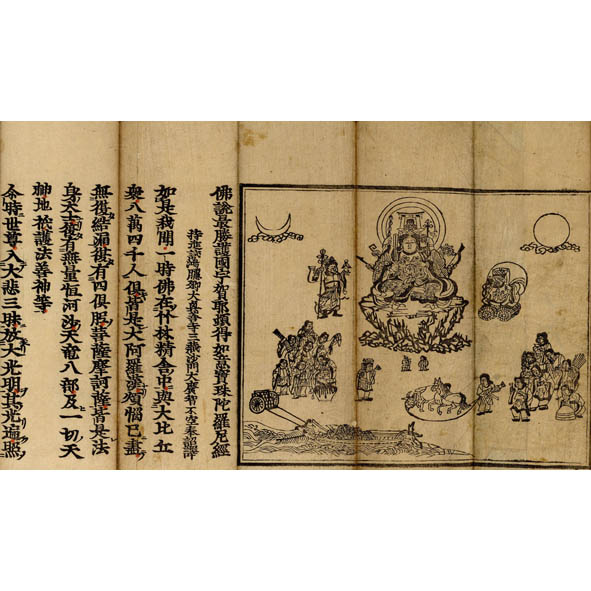 佛說最勝護國宇賀耶頓得如意寶珠陀羅尼經
特進試鴻臚卿大興善寺三藏沙門大廣智不空奉詔譯
如是我聞一時佛在竹林精舍中與大比丘
衆八萬四千人俱皆是大阿羅漢煩惱已盡
無復結漏復有四俱胝菩薩摩訶薩皆是法
身大士復有無量恒河沙天竜八部及一切天
神地祇護法善神等
尒時世尊入大悲三昧放大光明其光遍照